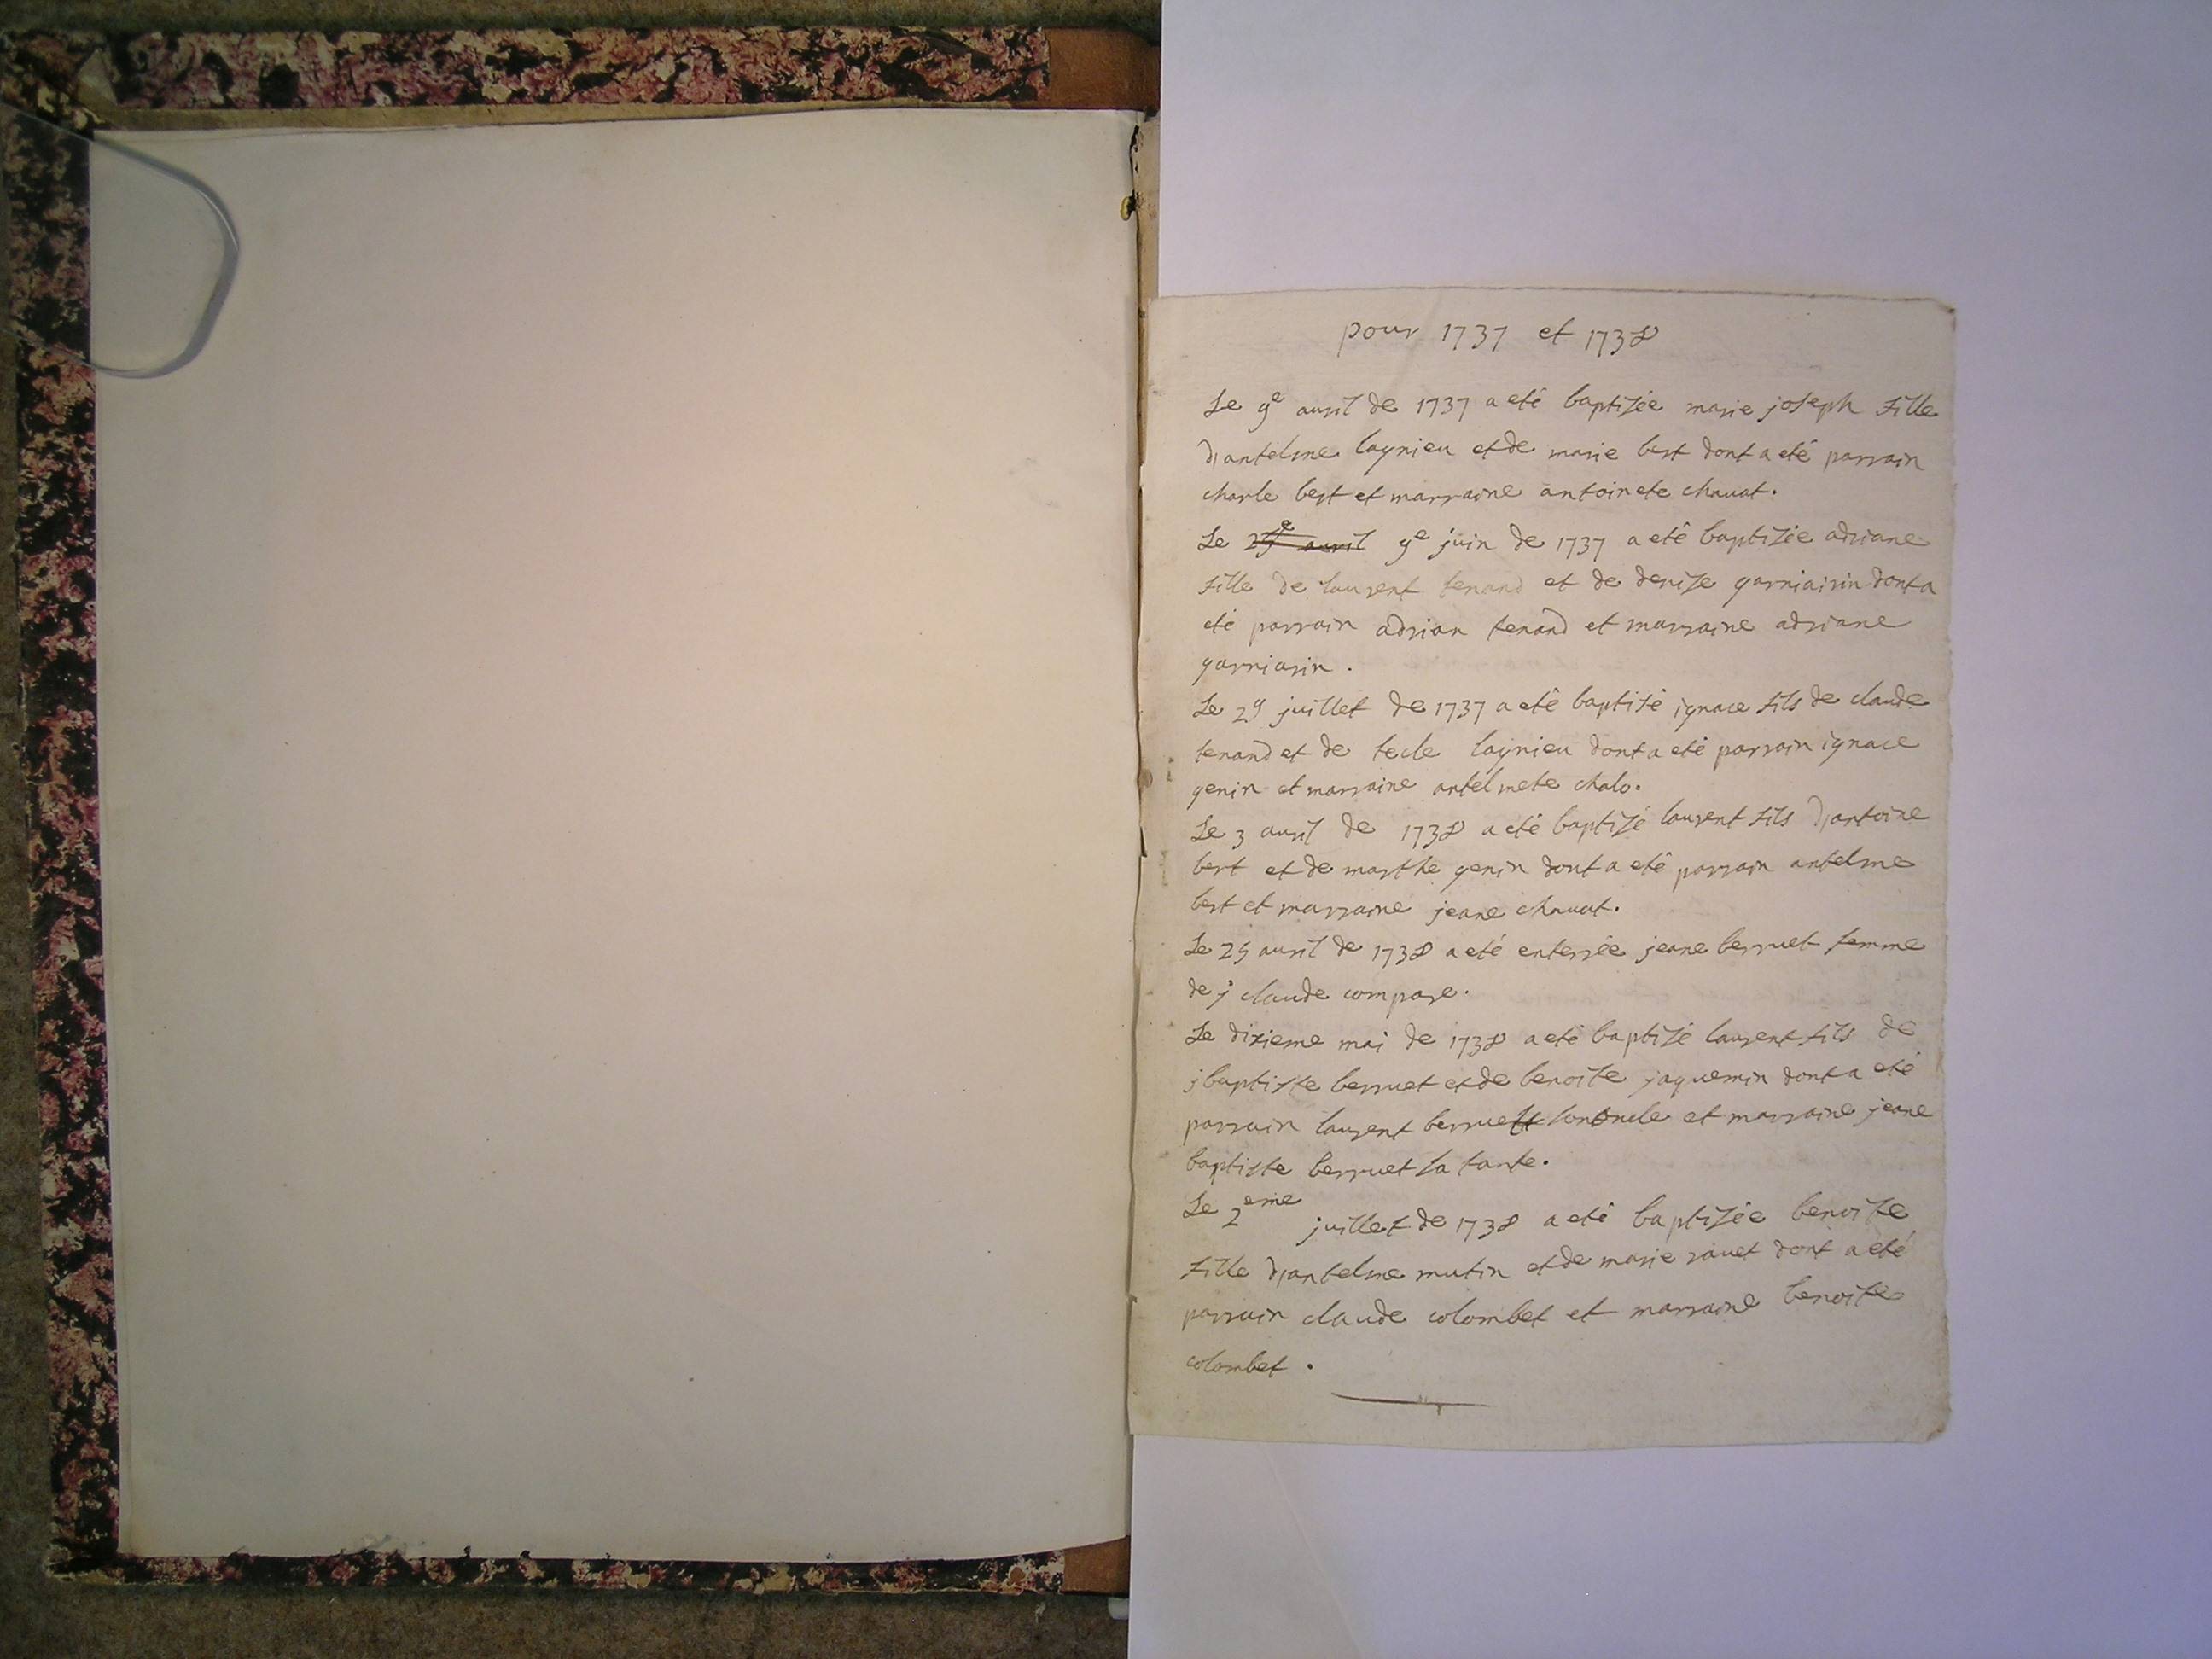 pour 1737 et 1738
Le 9e avril de 1737 a eté baptizée marie joseph fille
d'antelme lagnieu et de marie bert dont a eté parrain
charle bert et marraine antoinete chavat.
Le 9e juin de 1737 a eté baptizée adriane
fille de laurent tenand et de denize garniairin dont a
eté parrain adrian tenand et marraine adriane
garniarin.
Le 29 juillet de 1737 a eté baptisé ignace fils de claude
tenand et de tecle lagnieu dont a eté parrain ignace
genin et marraine antelmete chalo.
Le 3 avril de 1738 a eté baptizé laurent fils d'antoine
bert et de marthe genin dont a eté parrain antelme
bert et marraine jeane chavat.
Le 25 avril de 1738 a eté enterrée jeane berruet femme
de j claude compare.
Le dixieme mai de 1738 a eté baptizé laurent fils de
jbaptiste berruet et de benoite jaquemin dont a eté
parrain laurent berruet son oncle et marraine jeane
baptiste berruet sa tante.
Le 2eme juillet de 1738 a eté baptizée benoite
fille d'antelme mutin et de marie ravet dont a eté
parrain claude colombet et marraine benoite
colombet.